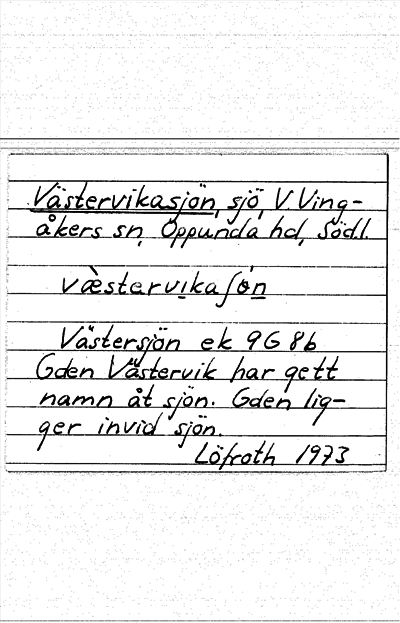 Västervikasjön, sjö, V Ving-
åkers sn, Oppunda hd, Södl.
væ̀stervịkaʃǿṇ
Västersjön ek 9G 8b
Gden Västervik har gett
namn åt sjön. Gden lig-
ger invid sjön.
Löfroth 1973